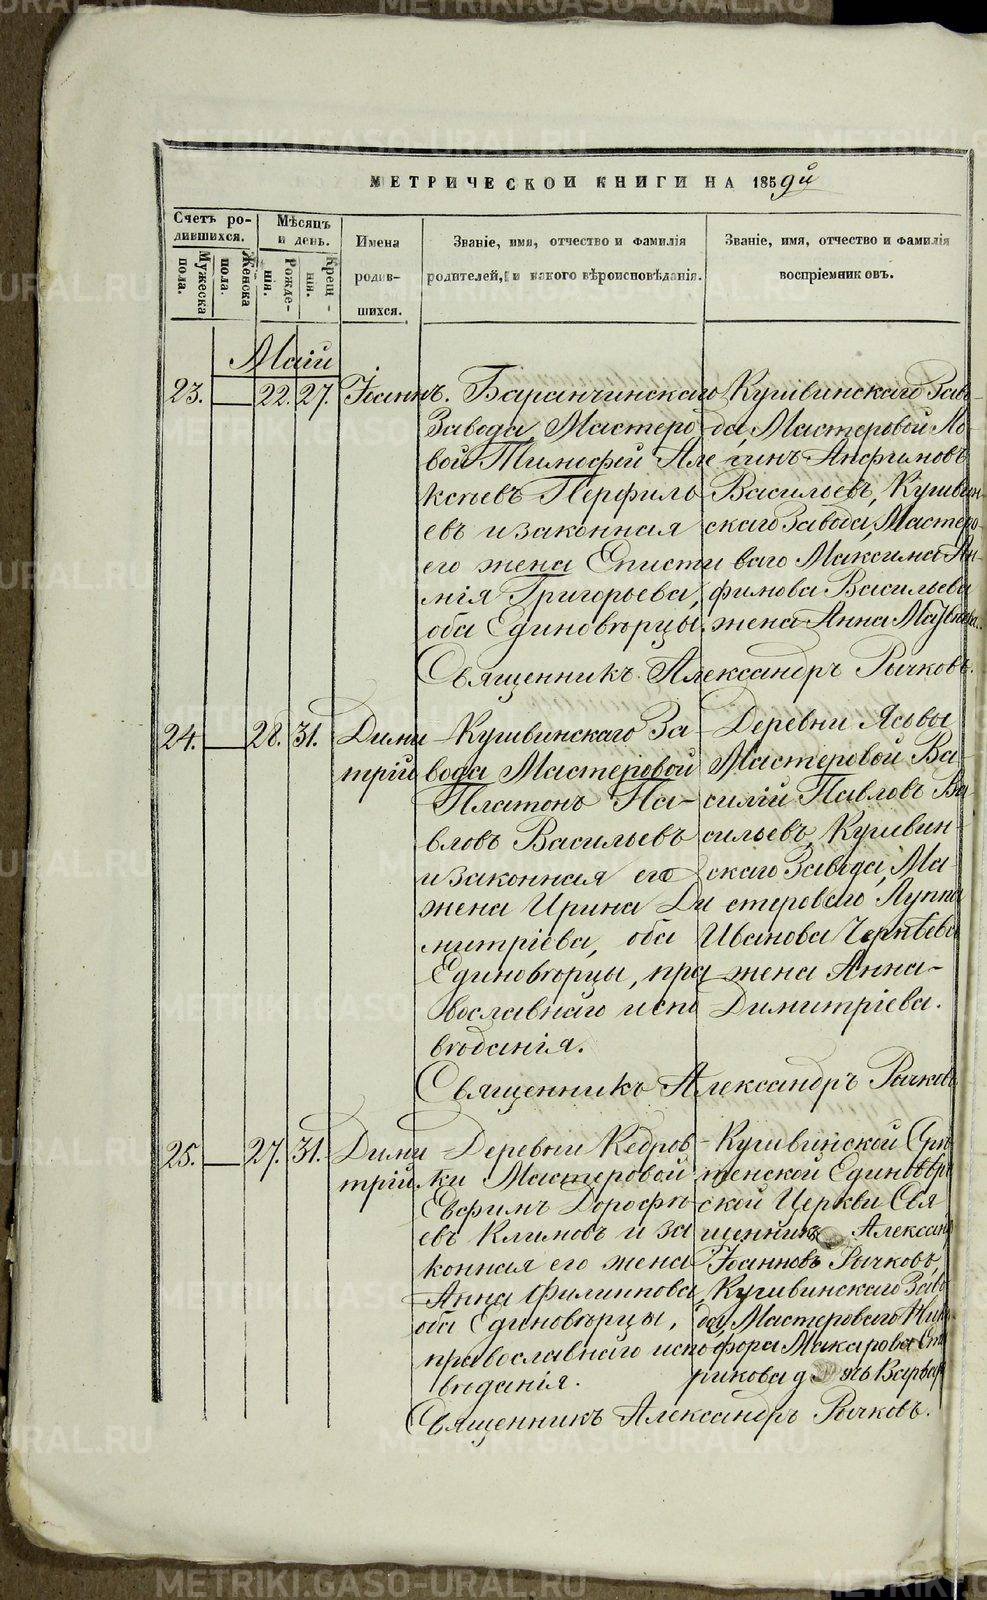 МЕТРИЧЕСКОЙ КНИГИ НА 1859й
Счетъ ро-
дившихся.
Мужеска пола.
Женска пола.
Мѣсяцъ
и день.
Рожде-
нія.
Крещ-
нія.
Имена
родив-
шихся.
Званіе, имя, отчество и фамилія
родителей, и какого вѣроисповѣданія.
Званіе, имя, отчество и фамилія
воспріемниковъ.
Маій
23. — 22. 27. Іоаннъ.
Баранчинскаго
Завода, Мастеро
вой Тимофей Але
ксѣевъ Перфиль
евъ и законная
его жена Еписти
мія Григорьева,
оба Единовѣрцы.
Кушвинскаго Заво-
да, Мастеровой Ло-
гинъ Анфимовъ
Васильевъ, Кушвин-
скаго Завода, Мастеро-
ваго Максима Ан-
фимова Васильева
жена Анна
Священникъ Александръ Рычковъ.
24. — 28. 31. Дими
трій
Кушвинскаго За
вода Мастеровой
Платонъ Па-
вловъ Васильевъ
и законная его
жена Ирина Ди
митріева, оба
Единовѣрцы, пра
вославнаго испо
вѣданія.
Деревни Ясовы
Мастеровой Ва-
силій Павловъ Ва
сильевъ, Кушвин-
скаго Завода, Ма-
стероваго Луппа
Иванова Чернѣева
жена Анна-
Димитріева.
Священникъ Александръ Рычковъ
25. — 27. 31. Дими
трій
Деревни Кедров-
ки Мастеровой
Евфимъ Дорофѣ
евъ Климовъ и за
конная его жена
Анна Филиппова,
оба Единовѣрцы,
православнаго испо
вѣданія.
Кушвинской Срѣ
тенской Единовѣрче
ской Церкви Свя
щенникъ Александръ
Іоанновъ Рычковъ,
Кушвинскаго Заво
да, Мастероваго Ники
фора Макарова Ста
рикова дочь Варвара
Священникъ Александръ Рычковъ.
METRIKI.GASO-URAL.RU